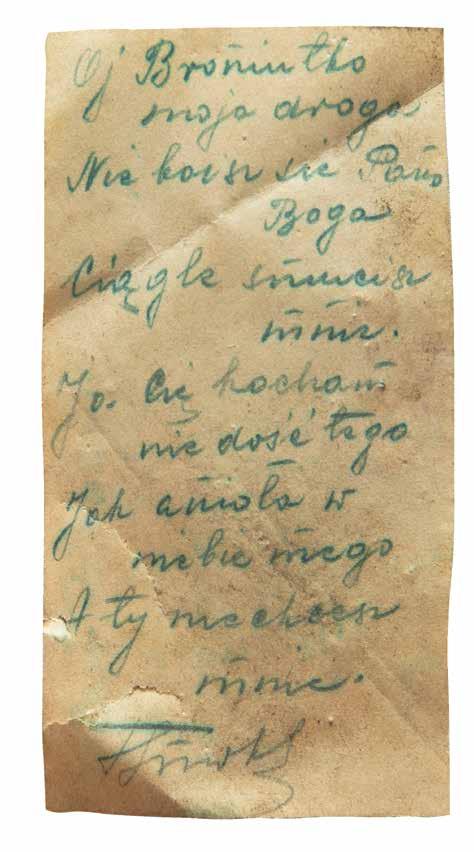 Oj Broniutko
moja droga
Nie boisz się Pana
Boga
Ciągle smucisz
mnie.
Ja Cię kocham
nie dość tego
Jak anioła w
niebie mego
A ty niechcesz
mnie.